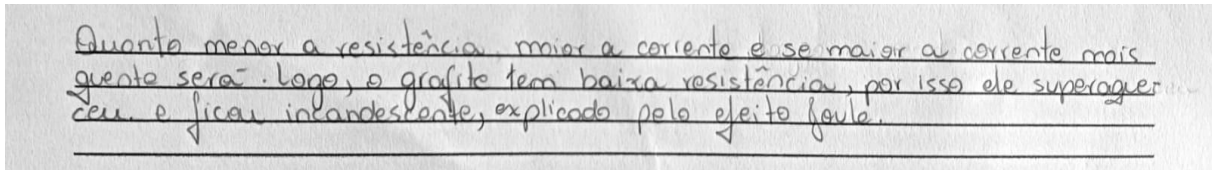 Quanto menor a resistência, maior a corrente e se maior a corrente mais
quente será. Logo, o grafite tem baixa resistência, por isso ele superaque
ceu e ficou incandescente, explicado pelo efeito Joule.